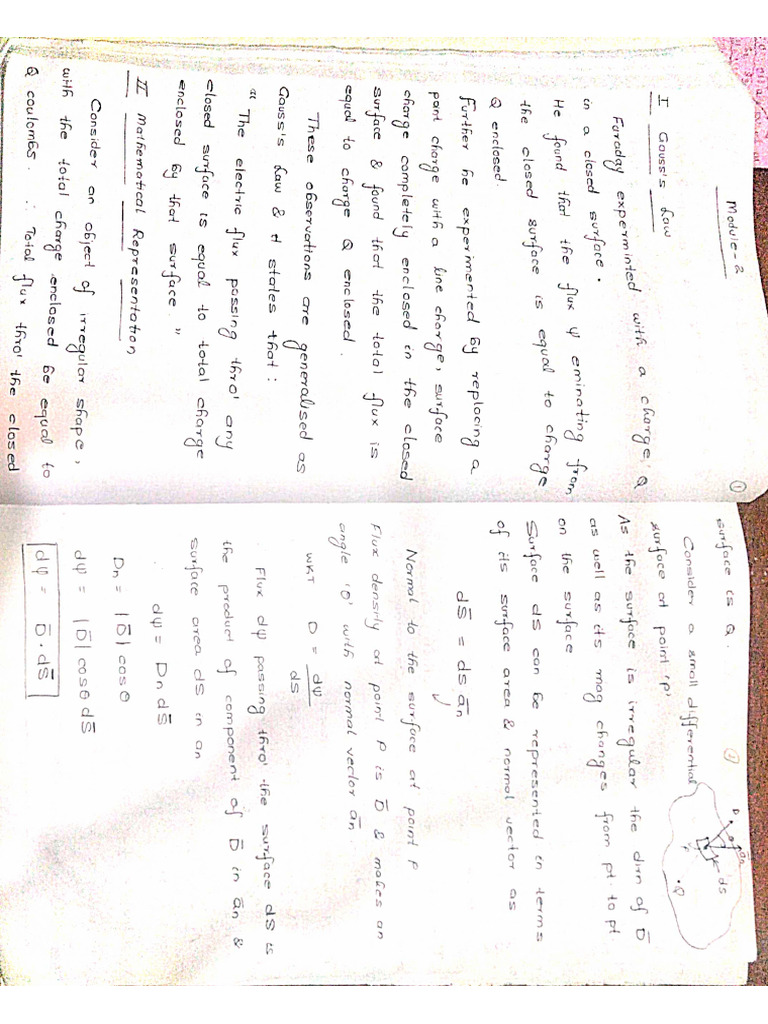 Module-2
①
I Gauss's Law
Faraday experminted with a charge Q
in a closed surface.
He found that the flux ψ eminating from
the closed surface is equal to charge
Q enclosed.
further he experimented by replacing a
point charge with a line charge, surface
charge completely enclosed in the closed
surface & found that the total flux is
equal to charge Q enclosed.
These observations are generalised as
Gauss's Law & it states that:
"The electric flux passing thro' any
closed surface is equal to total charge
enclosed by that surface."
II Mathematical Representation
Consider an object of irregular shape,
with the total charge enclosed be equal to
Q coulombs. ∴ Total flux thro' the closed
②
surface is Q.
Consider a small differential
surface at point 'P'
D ān
dS
P
.Q
As the surface is irregular the dirn of D̄
as well as its mag changes from pt to pt
on the surface
Surface ds can be represented in terms
of its surface area & normal vector as
dS̄ = ds ān
Normal to the surface at point P
Flux density at point P is D̄ & makes an
angle 'θ' with normal vector ān.
WKT D = dψ/ds
Flux dψ passing thro' the surface dS is
the product of component of D̄ in ān &
surface area dS in an
∴ dψ = Dn dS̄
Dn = |D̄| cosθ
dψ = |D̄| cosθ dS̄
dψ = D̄ . dS̄